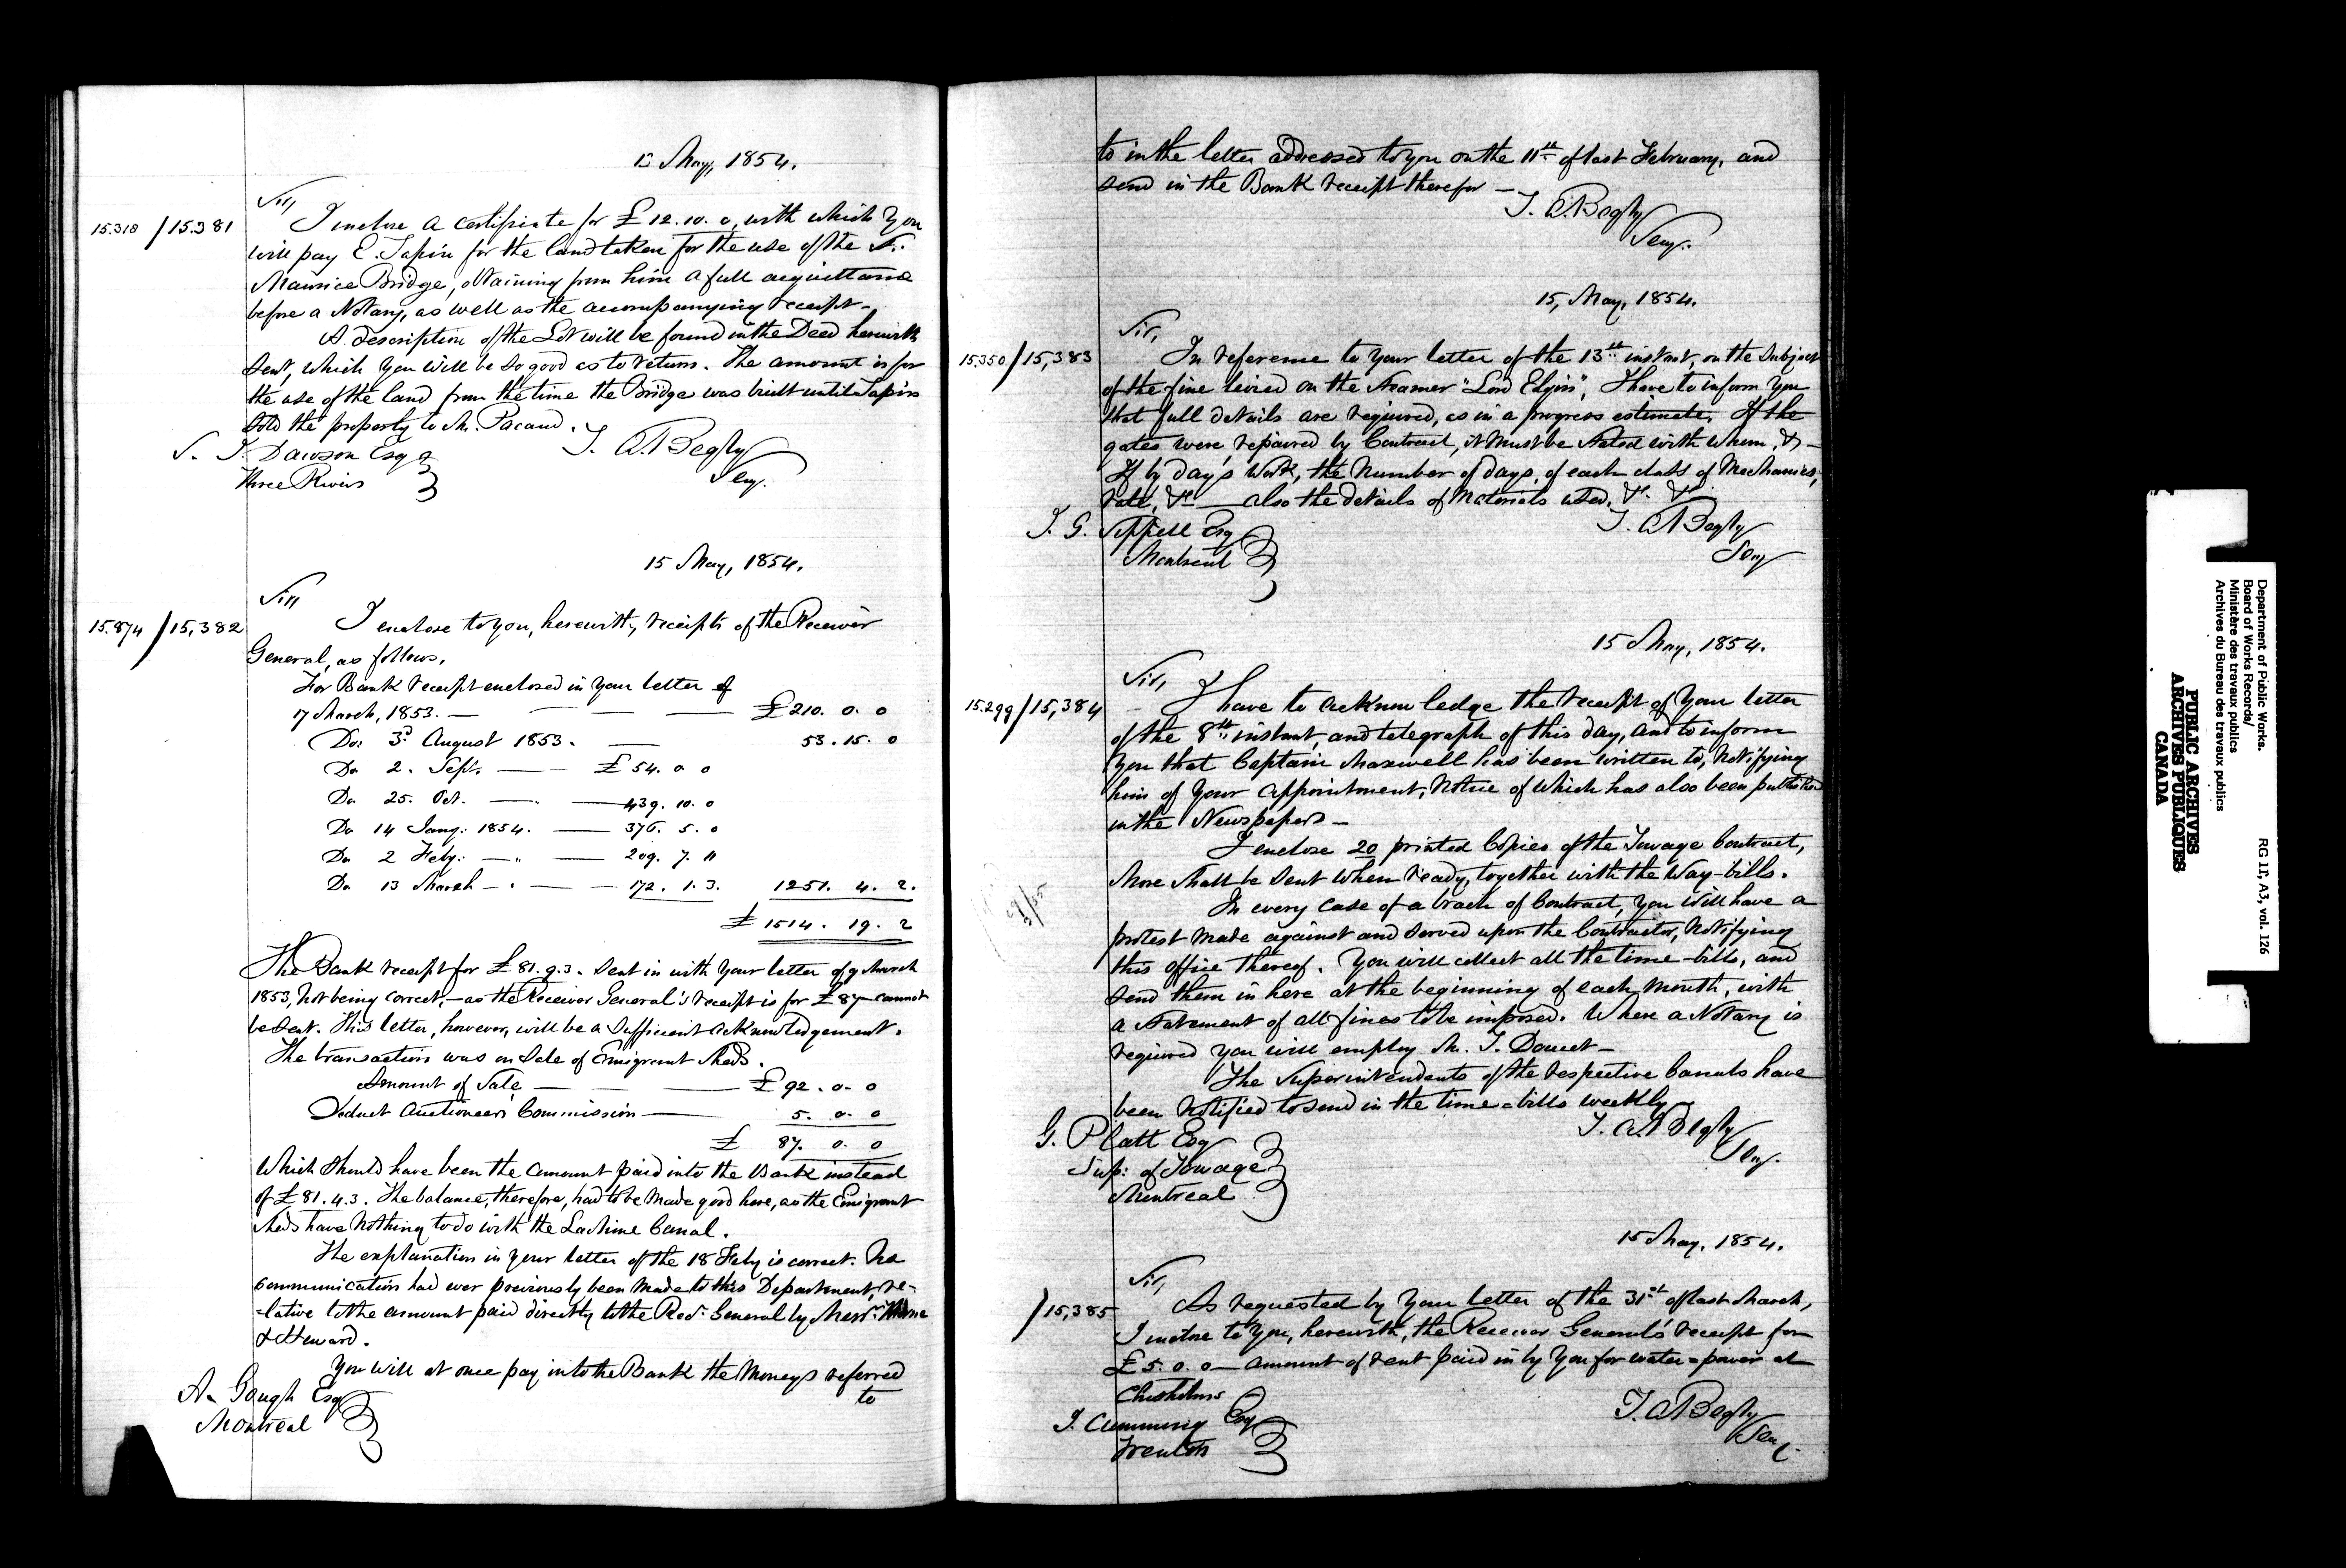 15 May, 1854.
Sir,
15.318 / 15.381
I inclose a certificate for £12.10.0, with which you
will pay E. Lapin for the land taken for the use of the St.
Maurice Bridge, obtaining from him a full acquittance
before a Notary, as well as the accompanying receipt –
A description of the Lot will be found in the Deed herewith
sent, which you will be so good as to return. The amount is for
the use of the land from the time the Bridge was built until Lapin
sold the property to Mr. Pacaud.
T. A. Begly
Secy.
S. J. Dawson Esq
Three Rivers
15 May, 1854.
Sir,
15.874 / 15,382
I enclose to you, herewith, receipts of the Receiver
General, as follows.
For Bank receipt enclosed in your letter of
17 March, 1853. — £210. 0. 0
Do: 3d August 1853. — 53. 15. 0
Do 2. Sept. — £54. 0 0
Do 25. Oct. — 439. 10. 0
Do 14 Jany: 1854. — 376. 5. 0
Do 2 Feby: — " — 209. 7. 11
Do 13 March — " — 172. 1. 3. 1251. 4. 2.
£1514. 19. 2
The Bank receipt for £81.9.3. sent in with your letter of 9 March
1853, not being correct, – as the Receiver General's receipt is for £87 – cannot
be sent. This letter, however, will be a sufficient acknowledgement.
The transaction was on Sale of Emigrant Sheds.
Amount of Sale — £92. 0. 0
Deduct Auctioneers Commission — 5. 0. 0
£ 87. 0. 0
Which should have been the amount paid into the Bank instead
of £81.4.3. The balance, therefore, had to be made good here, as the Emigrant
Sheds have nothing to do with the Lachine Canal.
The explanation in your letter of the 18 Feby is correct. No
communication had ever previously been made to this Department, re-
-lative to the amount paid directly to the Recr. General by Messrs.
& Heward.
You will at once pay into the Bank the moneys referred
to
A. Gough Esq
Montreal
to in the letter addressed to you on the 11th of last February, and
send in the Bank receipt therefor –
T. A. Begly
Secy.
15, May, 1854.
Sir,
15.350 / 15,383
In reference to your letter of the 13th instant, on the subject
of the fine levied on the Steamer "Lord Elgin", I have to inform you
that full details are required, as in a progress estimate. If the
gates were repaired by Contract, it must be stated with whom, &c –
If by day's work, the number of days, of each class of Mechanics,
rate, &c — also the details of materials used, &c. &c.
T. A. Begly
Secy
J. G. Sippell Esq
Montreal
15 May, 1854.
Sir,
15.299 / 15,384
I have to acknowledge the receipt of your letter
of the 8th instant, and telegraph of this day, and to inform
you that Captain Maxwell has been written to, notifying
him of your appointment, notice of which has also been published
in the Newspapers –
I enclose 20 printed Copies of the Towage Contract,
More shall be sent when ready, together with the Way-bills.
In every case of a breach of Contract, you will have a
protest made against and served upon the Contractor, notifying
this office thereof. You will collect all the time-bills, and
send them in here at the beginning of each month, with
a statement of all fines to be imposed. Where a Notary is
required you will employ Mr. T. Doucet –
The Superintendents of the respective Canals have
been notified to send in the time-bills weekly –
T. A. Begly
Secy.
G. Platt Esq
Sup: of Towage
Montreal
15 May, 1854.
Sir,
/ 15,385
As requested by your letter of the 31st of last March,
I inclose to you, herewith, the Receiver General's receipt for
£5. 0. 0 – amount of rent paid in by you for water-power at
Chisholms –
T. A. Begly
Secy.
J. Cumming Esq
Trenton
Department of Public Works.
Board of Works Records/
Ministère des travaux publics
Archives du Bureau des travaux publics
RG 11, A3, vol. 126
PUBLIC ARCHIVES
ARCHIVES PUBLIQUES
CANADA